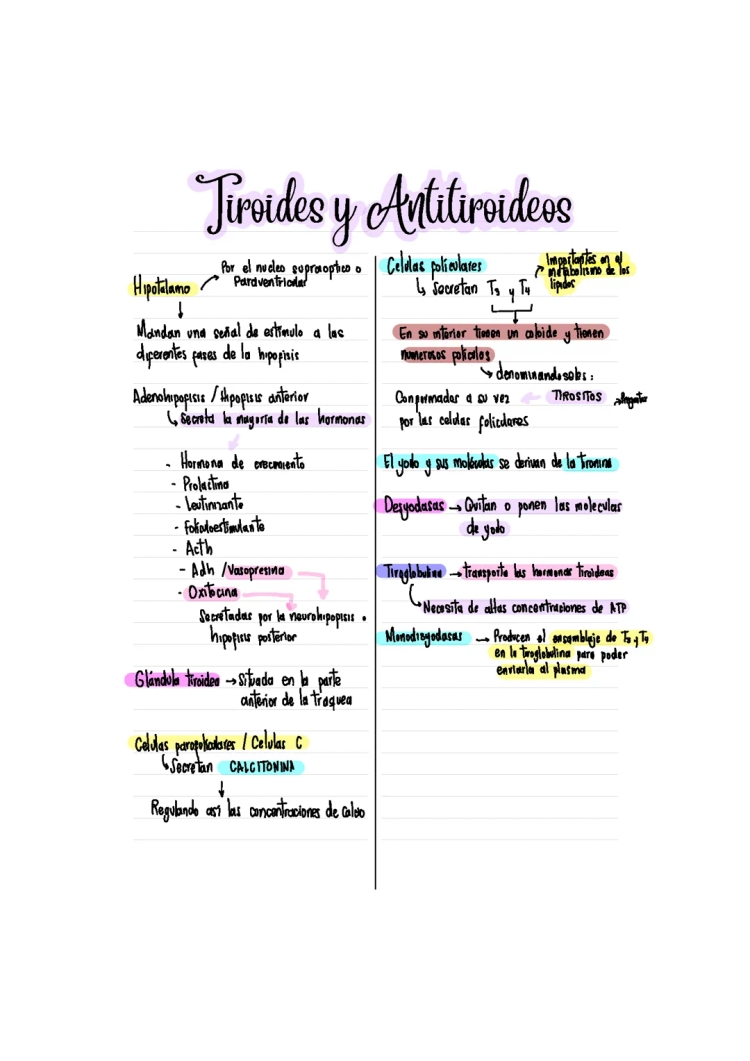 Tiroides y Antitiroideos
Por el nucleo supraoptico o
Paraventricular
Hipotalamo
Mandan una señal de estimulo a las
diferentes fases de la hipofisis
Adenohipofisis / Hipofisis anterior
Secreta la mayoria de las hormonas
- Hormona de crecimiento
- Prolactina
- Leutinizante
- foliculoestimulante
- Acth
- Adh / Vasopresina
- Oxitocina
Secretadas por la neurohipofisis o
hipofisis posterior
Glándula tiroidea → Situada en la parte
anterior de la traquea
Celulas parafoliculares / Celulas C
Secretan CALCITONINA
Regulando así las concentraciones de Calcio
Celulas foliculares
Secretan T3 y T4
Importantes en el
metabolismo de los
lipidos
En su interior tienen un coloide y tienen
numerosos folicolos
denominandoseles:
Conformados a su vez TIROSITOS
por las celulas foliculares
El yodo y sus moleculas se derivan de la tironina
Desyodasas → Quitan o ponen las moleculas
de yodo
Tiroglobulina → transporta las hormonas tiroideas
Necesita de altas concentraciones de ATP
Monodisyodasas → Producen el ensamblaje de T3 y T4
en la tiroglobulina para poder
enviarla al plasma